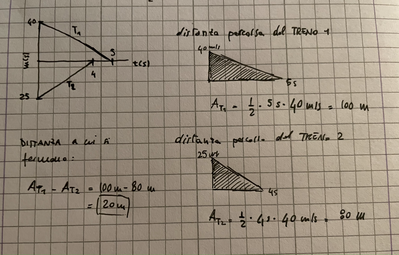 40
T1
m(s)
5
t(s)
4
T2
25
distanza percorsa dal TRENO 1
40 m/s
5s
AT1 = 1/2 · 5s · 40 m/s = 100 m
DISTANZA a cui si
fermano:
AT1 - AT2 = 100m - 80 m
= 20m
distanza percorsa dal TRENO 2
25 m/s
4s
AT2 = 1/2 · 4s · 40 m/s = 80 m